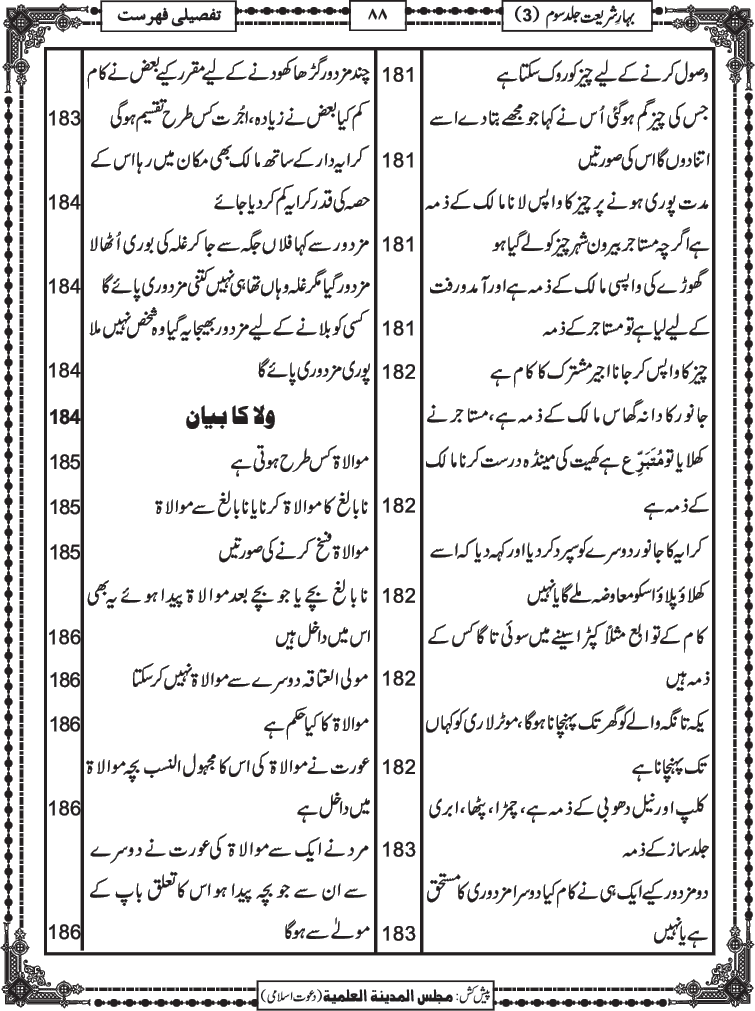 بہارِ شریعت جلد سوم (3)
۸۸
تفصیلی فہرست
وصول کرنے کے لیے چیز کو روک سکتا ہے 181
جس کی چیز گم ہوگئی اُس نے کہا جو مجھے بتادے اسے
اتنا دوں گا اس کی صورتیں 181
مدت پوری ہونے پر چیز کا واپس لانا مالک کے ذمہ
ہے اگرچہ مستاجر بیرون شہر چیز کو لے گیا ہو 181
گھوڑے کی واپسی مالک کے ذمہ ہے اور آمدورفت
کے لیے لیا ہے تو مستاجر کے ذمہ 181
چیز کا واپس کر جانا اجیر مشترک کا کام ہے 182
جانور کا دانہ گھاس مالک کے ذمہ ہے، مستاجر نے
کھلایا تو مُتَبَرِّع ہے کھیت کی مینڈھ درست کرنا مالک
کے ذمہ ہے 182
کرایہ کا جانور دوسرے کو سپرد کردیا اور کہہ دیا کہ اسے
کھلاؤ پلاؤ اسکو معاوضہ ملے گا یا نہیں 182
کام کے توابع مثلاً کپڑا سینے میں سوئی تاگا کس کے
ذمہ ہیں 182
یکہ تانگہ والے کو گھر تک پہنچانا ہوگا، موٹر لاری کو کہاں
تک پہنچانا ہے 182
کلپ اور نیل دھوبی کے ذمہ ہے، چمڑا، پٹھا، ابری
جلد ساز کے ذمہ 183
دو مزدور کیے ایک ہی نے کام کیا دوسرا مزدوری کا مستحق
ہے یا نہیں 183
چند مزدور گڑھا کھودنے کے لیے مقرر کیے بعض نے کام
کم کیا بعض نے زیادہ، اُجرت کس طرح تقسیم ہوگی 183
کرایہ دار کے ساتھ مالک بھی مکان میں رہا اس کے
حصہ کی قدر کرایہ کم کردیا جائے 184
مزدور سے کہا فلاں جگہ سے جا کر غلہ کی بوری اُٹھالا
مزدور گیا مگر غلہ وہاں تھا ہی نہیں کتنی مزدوری پائے گا 184
کسی کو بلانے کے لیے مزدور بھیجا یہ گیا وہ شخص نہیں ملا
پوری مزدوری پائے گا 184
ولا کا بیان 184
موالاۃ کس طرح ہوتی ہے 185
نابالغ کا موالاۃ کرنا یا نابالغ سے موالاۃ 185
موالاۃ فسخ کرنے کی صورتیں 185
نابالغ بچے یا جو بچے بعد موالاۃ پیدا ہوئے یہ بھی
اس میں داخل ہیں 186
مولی العتاقہ دوسرے سے موالاۃ نہیں کرسکتا 186
موالاۃ کا کیا حکم ہے 186
عورت نے موالاۃ کی اس کا مجہول النسب بچہ موالاۃ
میں داخل ہے 186
مرد نے ایک سے موالاۃ کی عورت نے دوسرے
سے ان سے جو بچہ پیدا ہو اس کا تعلق باپ کے
مولےٰ سے ہوگا 186
پیش کش: مجلس المدینة العلمیة (دعوتِ اسلامی)